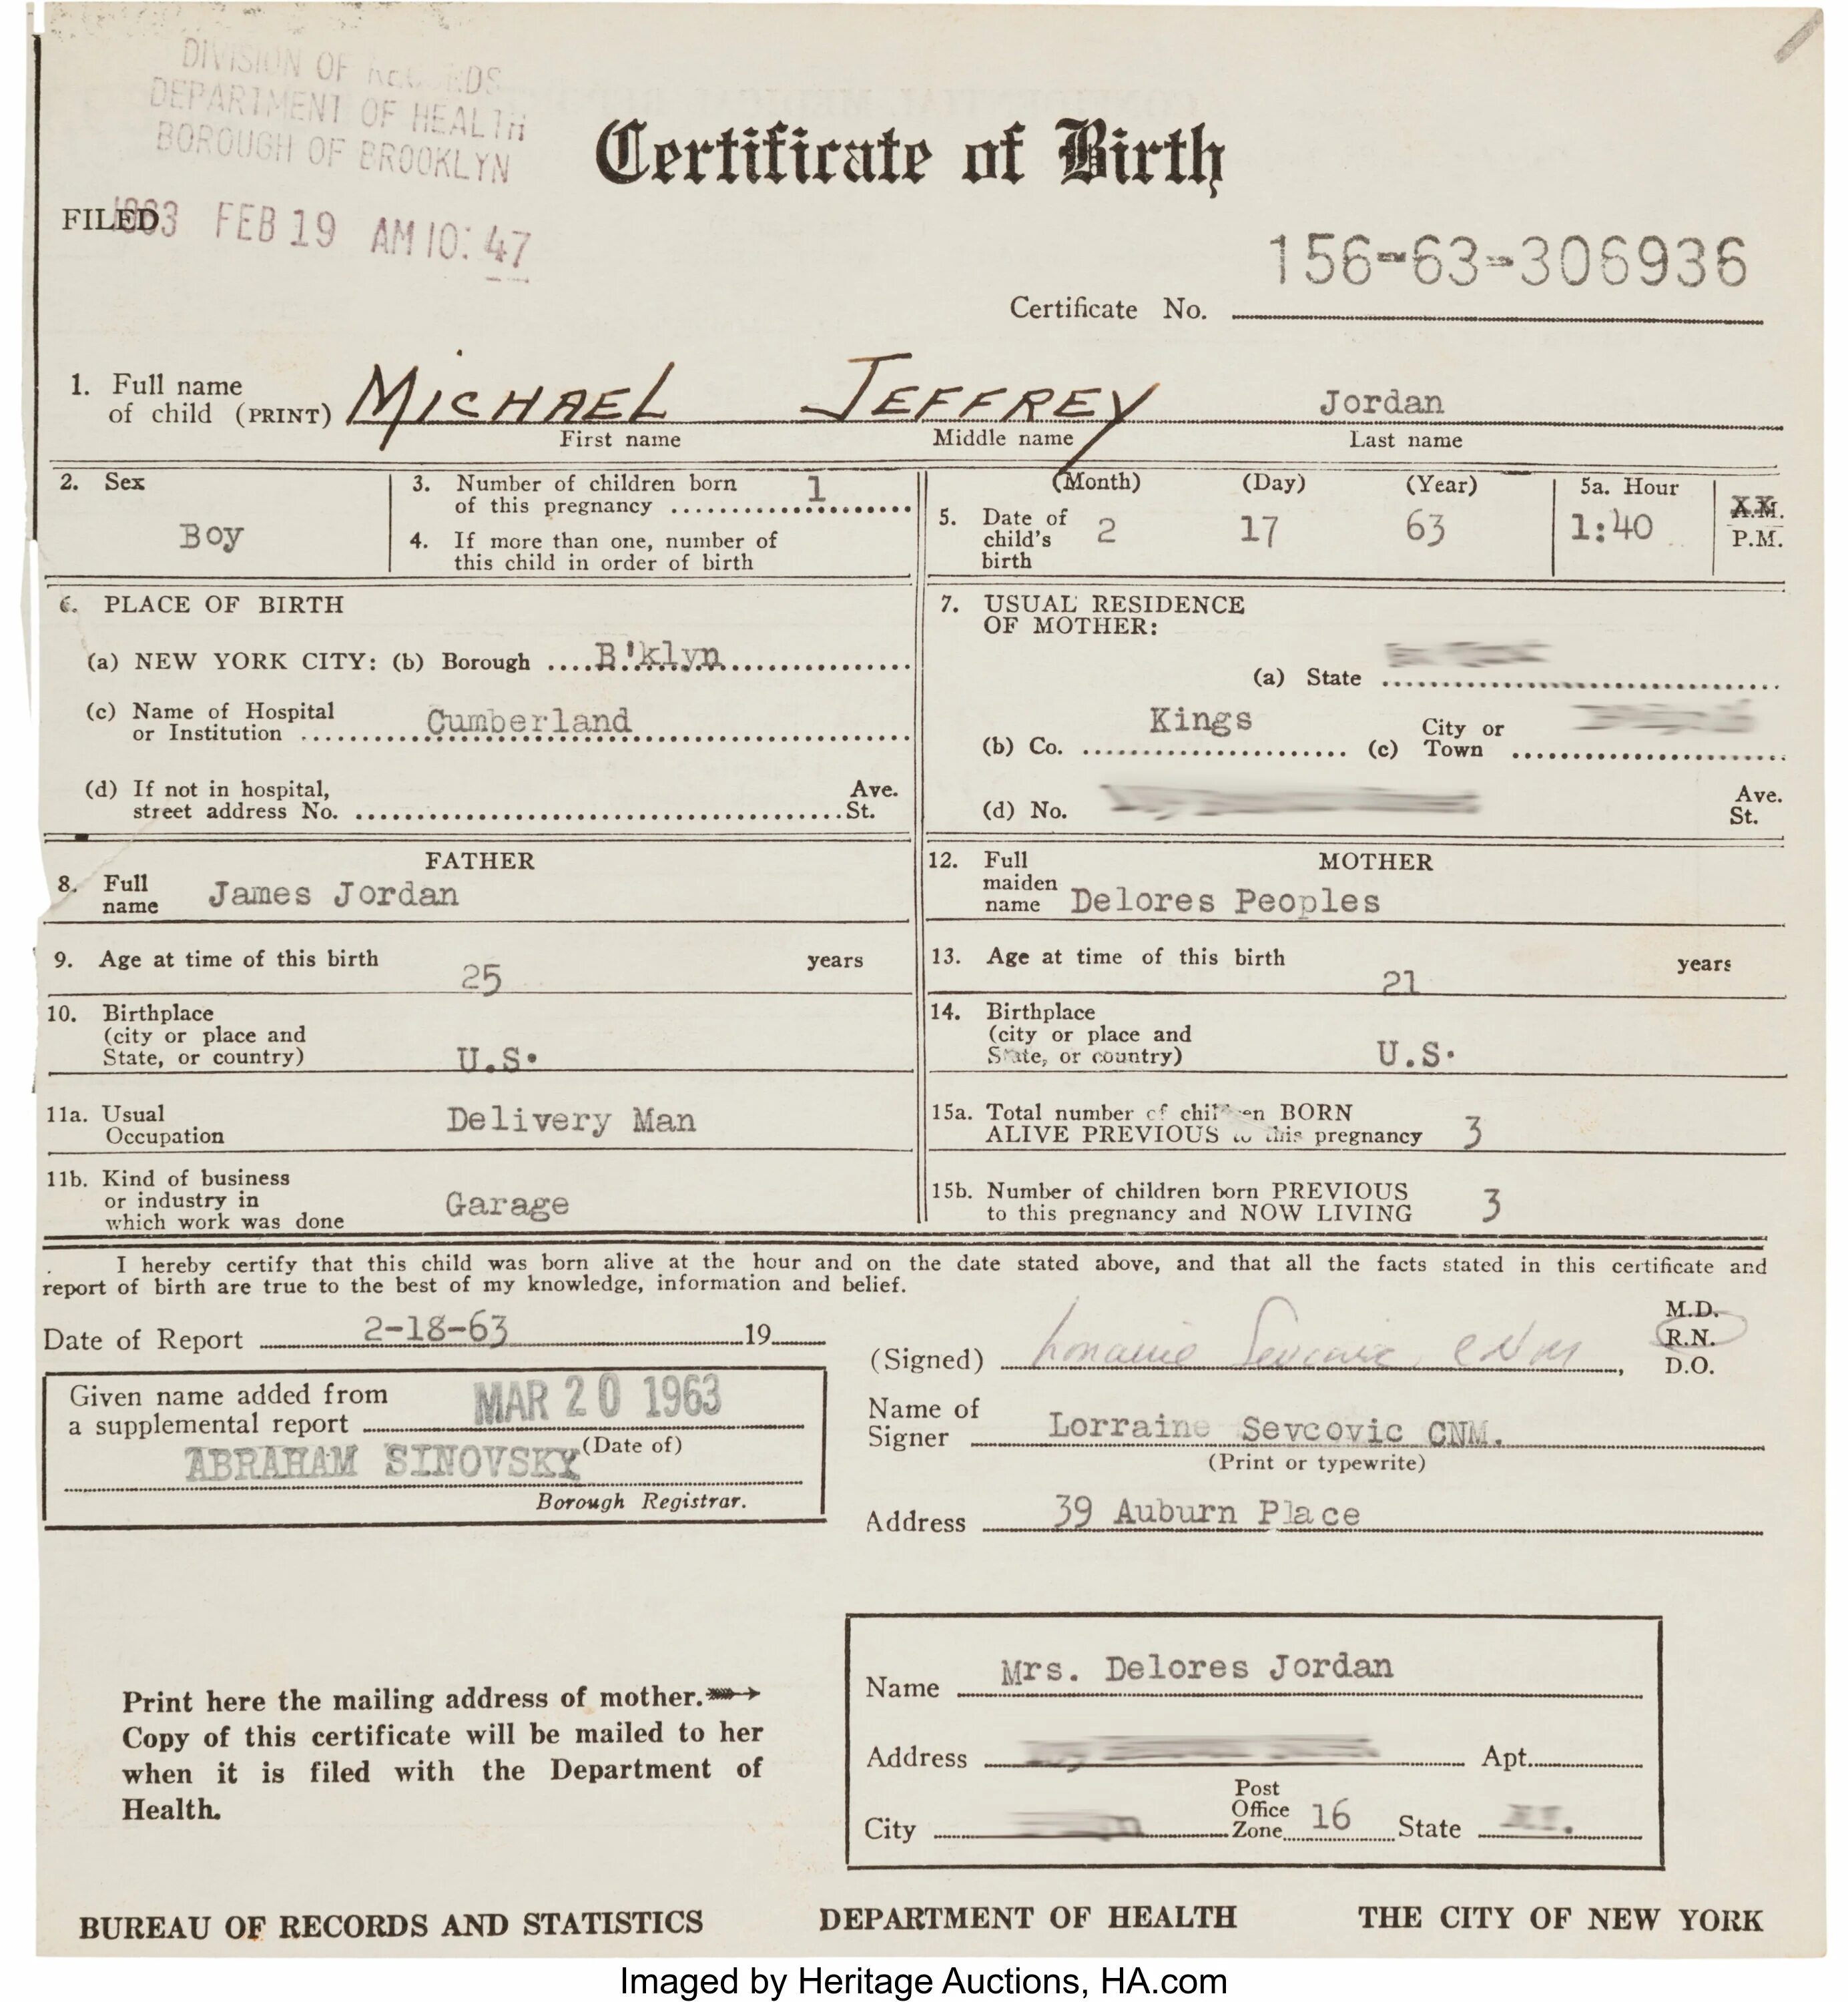 DIVISION OF RECORDS
DEPARTMENT OF HEALTH
BOROUGH OF BROOKLYN
Certificate of Birth
FILED 1963 FEB 19 AM 10:47
156-63-306936
Certificate No.
1. Full name of child (PRINT) MICHAEL JEFFREY Jordan
First name Middle name Last name
2. Sex
Boy
3. Number of children born of this pregnancy 1
4. If more than one, number of this child in order of birth
5. Date of child's birth (Month) 2 (Day) 17 (Year) 63
5a. Hour 1:40 A.M. P.M.
6. PLACE OF BIRTH
(a) NEW YORK CITY: (b) Borough B'klyn
(c) Name of Hospital or Institution Cumberland
(d) If not in hospital, street address No. Ave. St.
7. USUAL RESIDENCE OF MOTHER:
(a) State
(b) Co. Kings (c) City or Town
(d) No. Ave. St.
FATHER
8. Full name James Jordan
9. Age at time of this birth 25 years
10. Birthplace (city or place and State, or country) U.S.
11a. Usual Occupation Delivery Man
11b. Kind of business or industry in which work was done Garage
MOTHER
12. Full maiden name Delores Peoples
13. Age at time of this birth 21 years
14. Birthplace (city or place and State, or country) U.S.
15a. Total number of children BORN ALIVE PREVIOUS to this pregnancy 3
15b. Number of children born PREVIOUS to this pregnancy and NOW LIVING 3
I hereby certify that this child was born alive at the hour and on the date stated above, and that all the facts stated in this certificate and
report of birth are true to the best of my knowledge, information and belief.
Date of Report 2-18-63 19
(Signed) Lorraine Sevcovic, CNM, M.D. R.N. D.O.
Given name added from
a supplemental report MAR 20 1963
(Date of)
ABRAHAM SINOVSKY
Borough Registrar.
Name of Signer Lorraine Sevcovic CNM.
(Print or typewrite)
Address 39 Auburn Place
Print here the mailing address of mother.
Copy of this certificate will be mailed to her
when it is filed with the Department of
Health.
Name Mrs. Delores Jordan
Address Apt.
City Post Office Zone 16 State
BUREAU OF RECORDS AND STATISTICS DEPARTMENT OF HEALTH THE CITY OF NEW YORK
Imaged by Heritage Auctions, HA.com